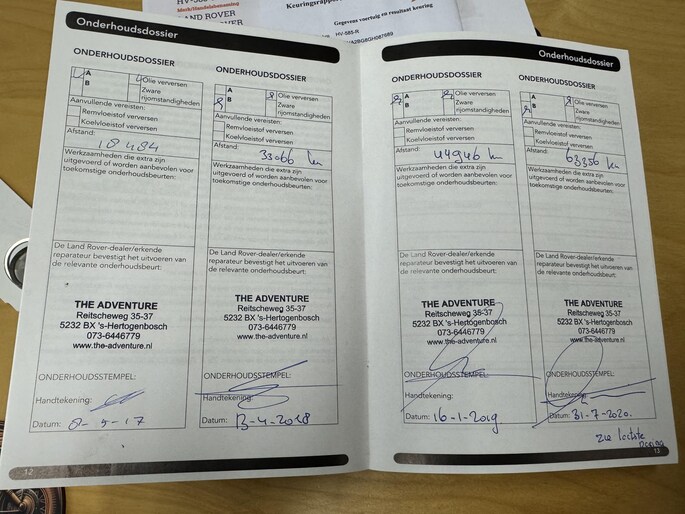 Merk/Handelsbenaming
LAND ROVER
Keuringsrapport
Gegevens voertuig en resultaat keuring
HV-585-R
Onderhoudsdossier
ONDERHOUDSDOSSIER
A
B
Olie verversen
Zware rijomstandigheden
Aanvullende vereisten:
Remvloeistof verversen
Koelvloeistof verversen
Afstand: 18484
Werkzaamheden die extra zijn
uitgevoerd of worden aanbevolen voor
toekomstige onderhoudsbeurten:
De Land Rover-dealer/erkende
reparateur bevestigt het uitvoeren van
de relevante onderhoudsbeurt:
THE ADVENTURE
Reitscheweg 35-37
5232 BX 's-Hertogenbosch
073-6446779
www.the-adventure.nl
ONDERHOUDSSTEMPEL:
Handtekening:
Datum: 8-5-17
12
ONDERHOUDSDOSSIER
A
B
Olie verversen
Zware
rijomstandigheden
Aanvullende vereisten:
Remvloeistof verversen
Koelvloeistof verversen
Afstand: 33066 km
Werkzaamheden die extra zijn
uitgevoerd of worden aanbevolen voor
toekomstige onderhoudsbeurten:
De Land Rover-dealer/erkende
reparateur bevestigt het uitvoeren van
de relevante onderhoudsbeurt:
THE ADVENTURE
Reitscheweg 35-37
5232 BX 's-Hertogenbosch
073-6446779
www.the-adventure.nl
ONDERHOUDSSTEMPEL:
Handtekening:
Datum: 13-4-2018
Onderhoudsdossier
ONDERHOUDSDOSSIER
A
B
Olie verversen
Zware
rijomstandigheden
Aanvullende vereisten:
Remvloeistof verversen
Koelvloeistof verversen
Afstand: 44946 km
Werkzaamheden die extra zijn
uitgevoerd of worden aanbevolen voor
toekomstige onderhoudsbeurten:
De Land Rover-dealer/erkende
reparateur bevestigt het uitvoeren van
de relevante onderhoudsbeurt:
THE ADVENTURE
Reitscheweg 35-37
5232 BX 's-Hertogenbosch
073-6446779
www.the-adventure.nl
ONDERHOUDSSTEMPEL:
Handtekening:
Datum: 16-1-2019
ONDERHOUDSDOSSIER
A
B
Olie verversen
Zware
rijomstandigheden
Aanvullende vereisten:
Remvloeistof verversen
Koelvloeistof verversen
Afstand: 63356 km
Werkzaamheden die extra zijn
uitgevoerd of worden aanbevolen voor
toekomstige onderhoudsbeurten:
De Land Rover-dealer/erkende
reparateur bevestigt het uitvoeren van
de relevante onderhoudsbeurt:
THE ADVENTURE
Reitscheweg 35-37
5232 BX 's-Hertogenbosch
073-6446779
www.the-adventure.nl
ONDERHOUDSSTEMPEL:
Handtekening:
Datum: 31-7-2020.
zie laatste
pagina
13